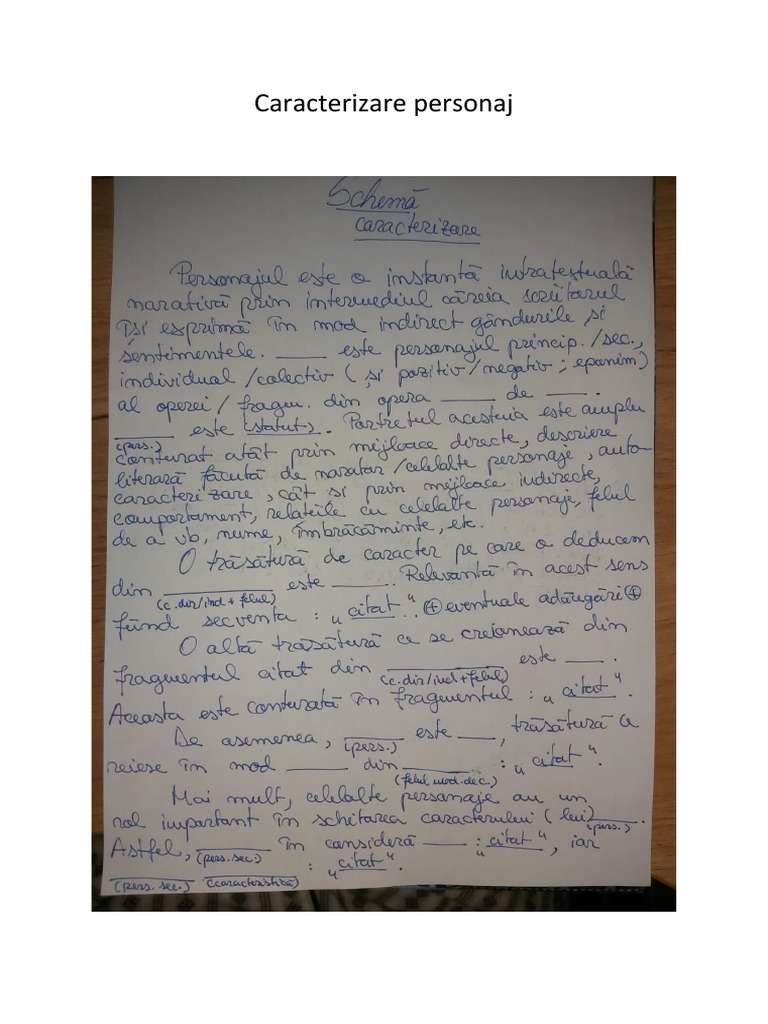 Caracterizare personaj
Schemă
caracterizare
Personajul este o instantă intratextuală
narativă prin intermediul căreia scriitorul
își exprimă în mod indirect gândurile și
sentimentele. ____ este personajul princip./sec.,
individual/colectiv (și pozitiv/negativ; eponim)
al operei/fragm. din opera ____ de ____.
____ este (statut). Portretul acestuia este amplu
(pers.)
conturat atât prin mijloace directe, descriere
literară făcută de narator/celelalte personaje, auto-
caracterizare, cât si prin mijloace indirecte,
comportament, relatiile cu celelalte personaje, felul
de a vb, nume, îmbrăcăminte, etc.
O trăsătură de caracter pe care o deducem
din ____ este ____. Relevantă în acest sens
(c.dir/ind + felul)
fiind secventa : "citat". ⊕ eventuale adăugări ⊕
O altă trăsătură ce se creionează din
fragmentul citat din ____ este ____.
(c.dir/ind+felul)
Aceasta este conturată în fragmentul : "citat".
De asemenea, ____ este ____, trăsătură ce
(pers.)
reiese în mod ____ din ____ : "citat".
(felul, mod.dec.)
Mai mult, celelalte personaje au un
rol important în schitarea caracterului (lui) ____.
(pers.)
Astfel, ____ în consideră ____ : "citat", iar
(pers.sec.)
____ ____ : "citat".
(pers. sec.) (caracteristică)